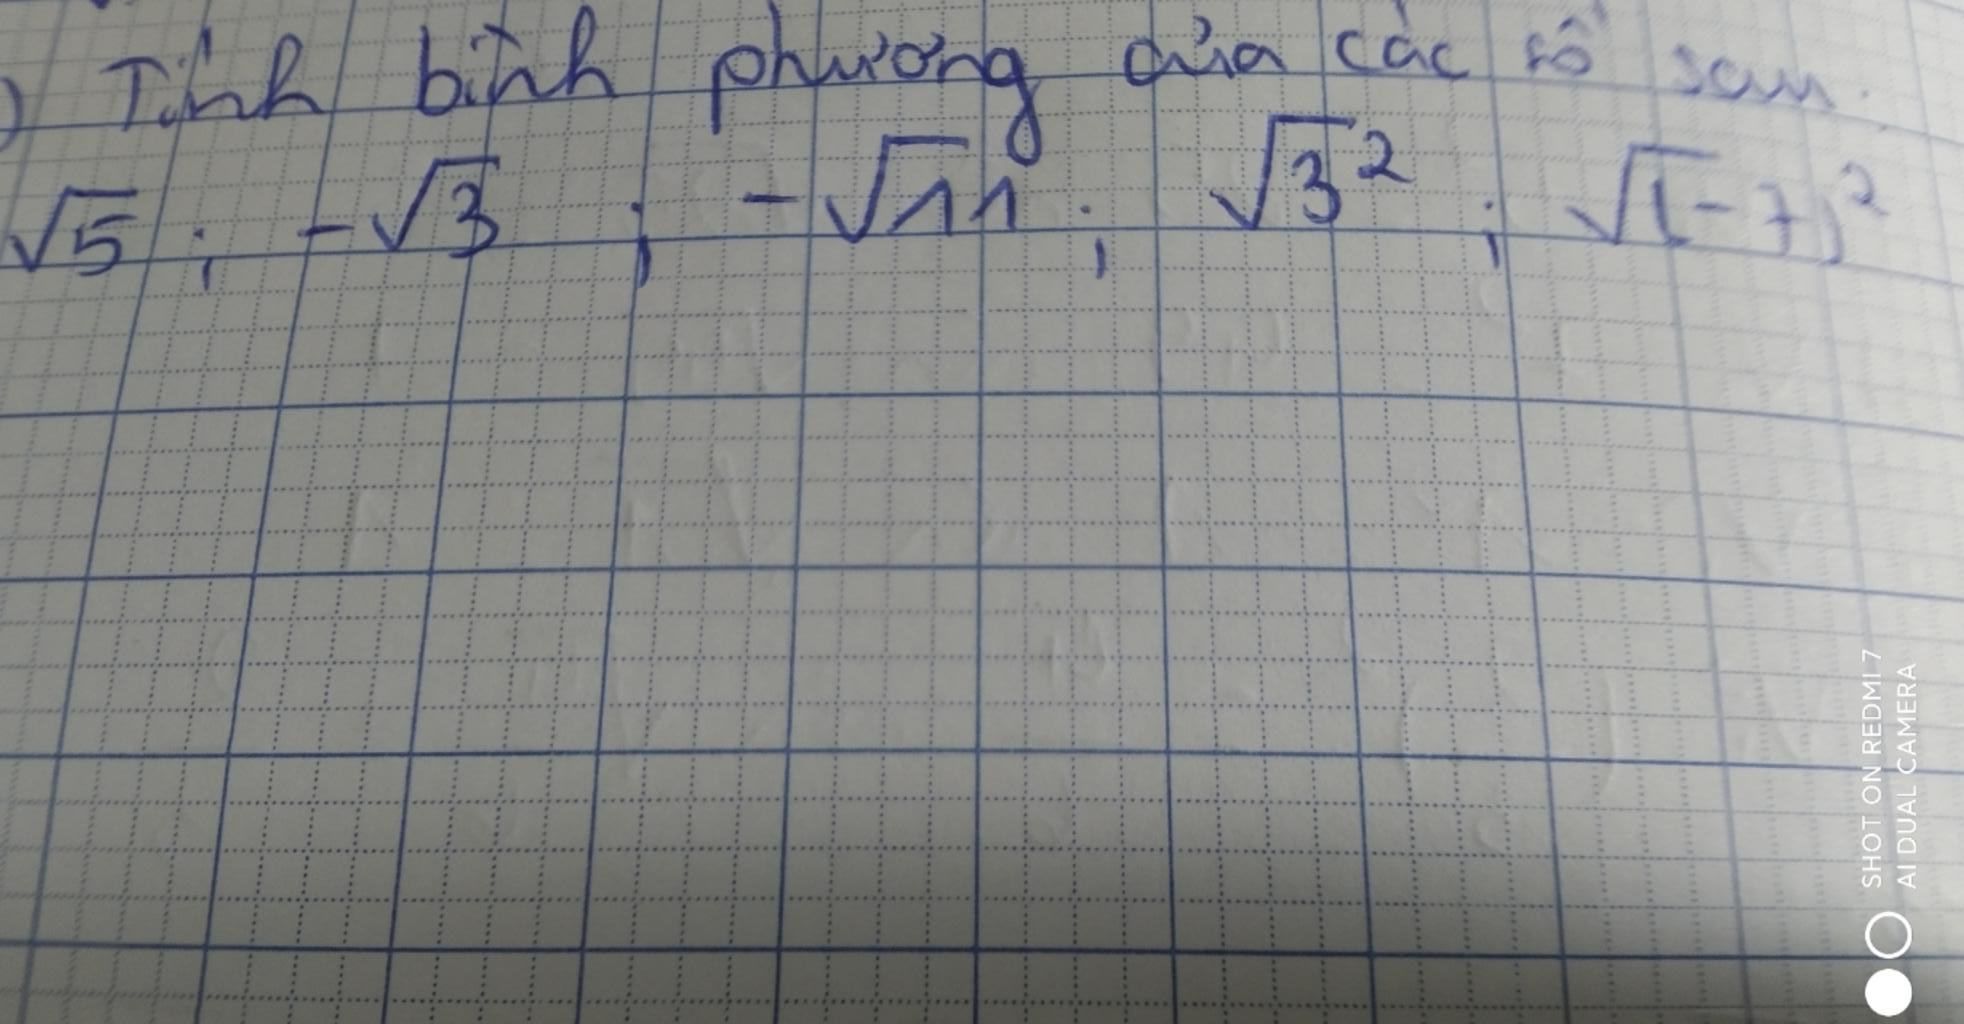 ) Tính bình phương của các số sau.
√5 ; -√3 ; -√11 ; √3² ; √(-7)²
SHOT ON REDMI 7
AI DUAL CAMERA